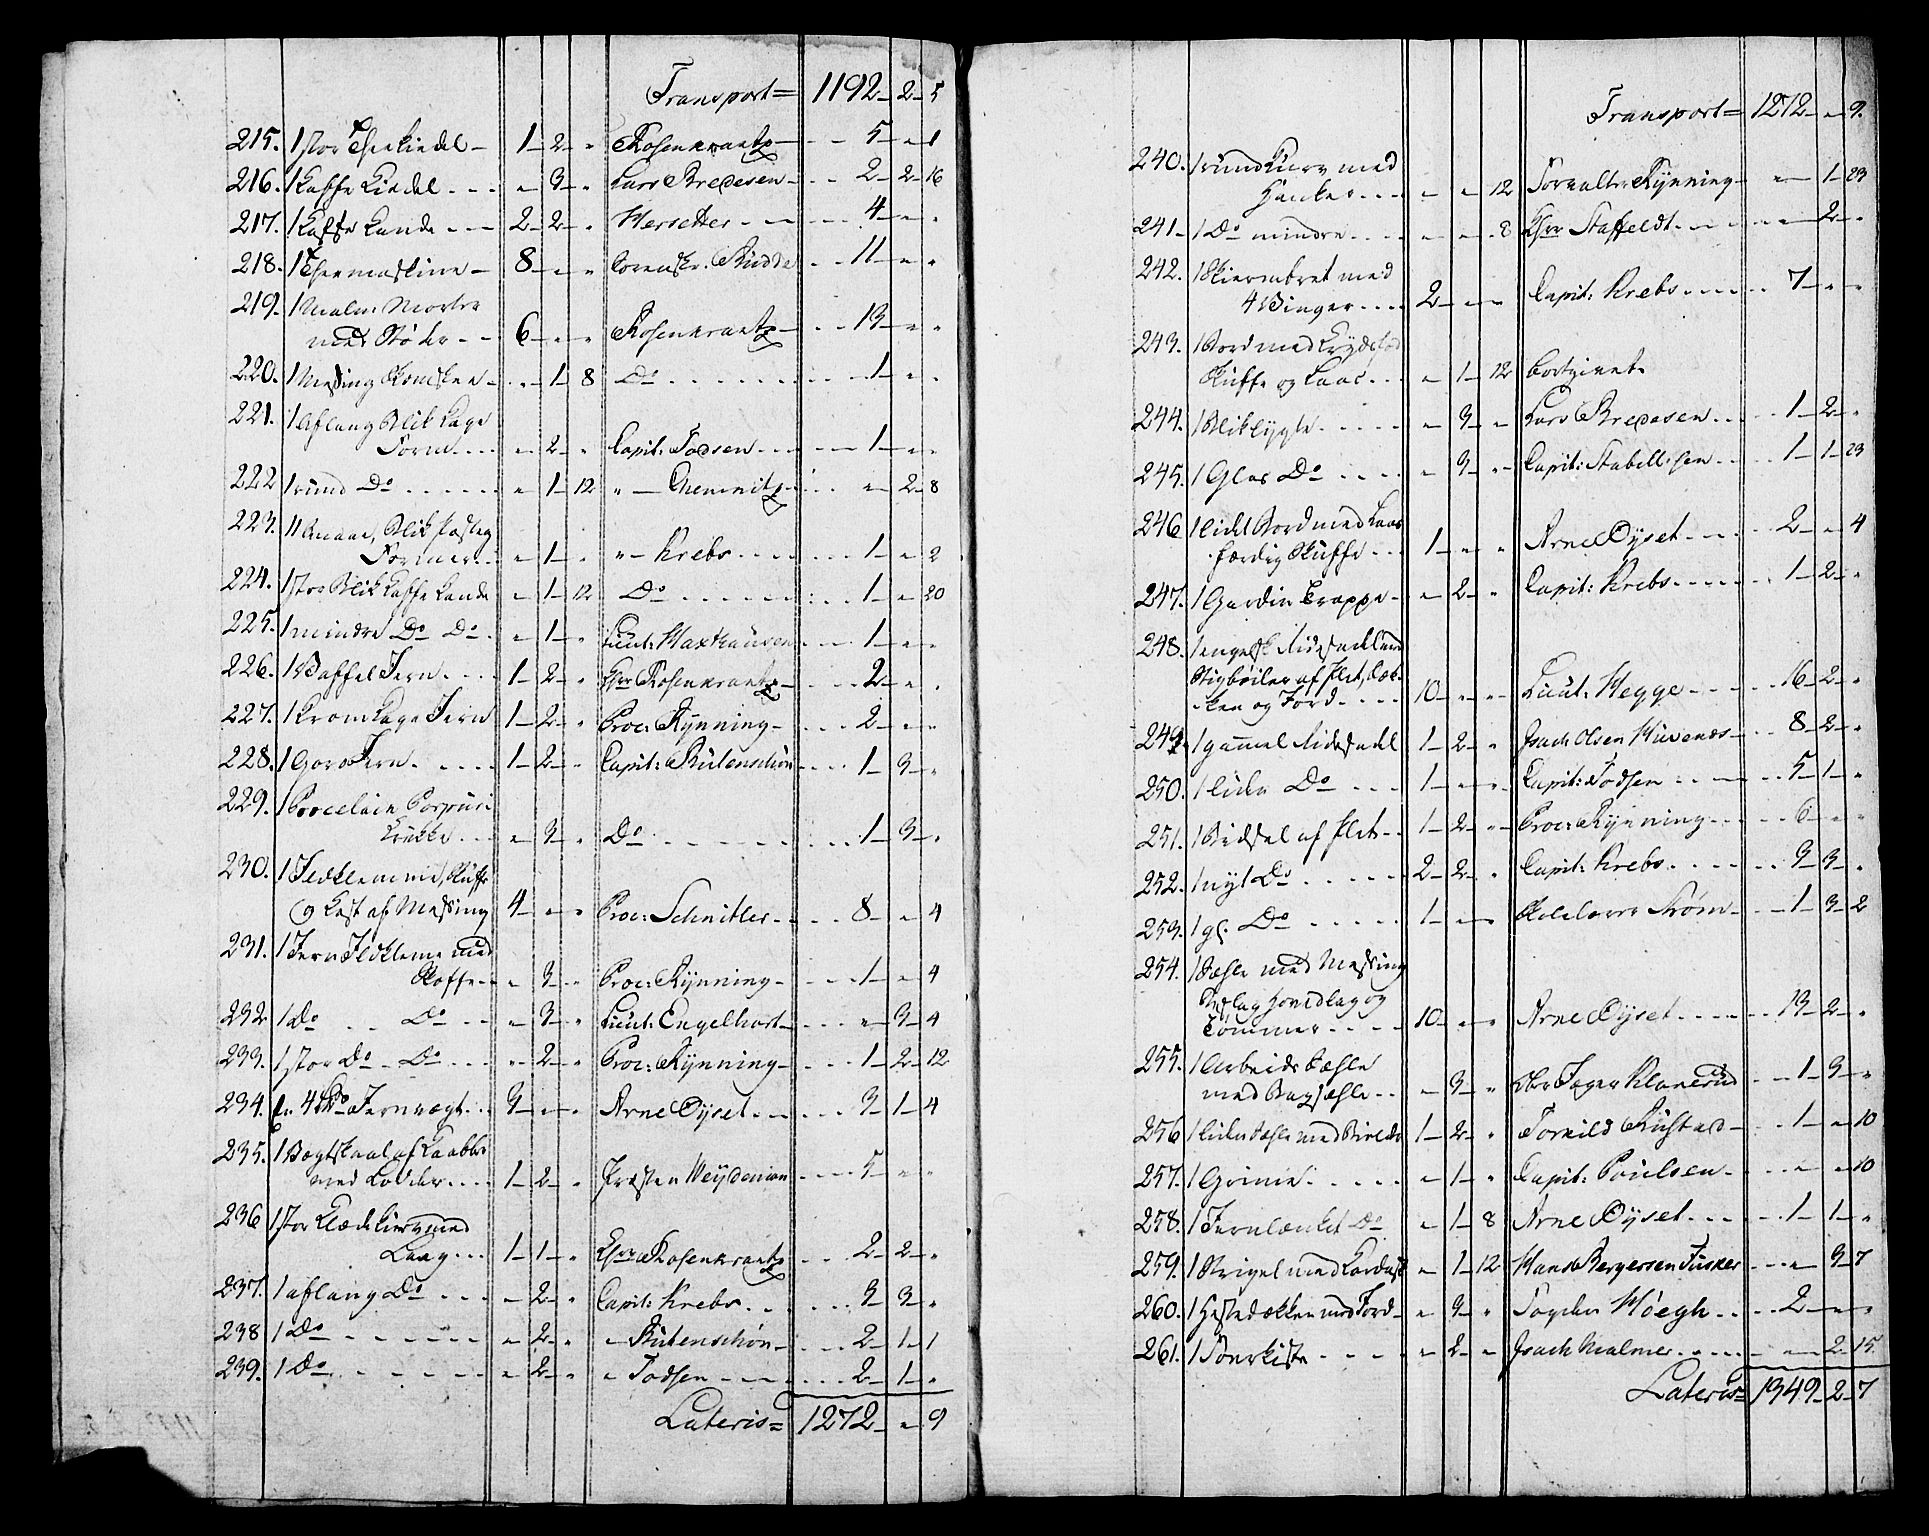 Transport = 1192 - 2 - 5
215. 1 stor Theekiedel - 1 - 2 - " Rosenkrantz - 5 - " 1
216. 1 Kaffe Kiedel - " - 3 - " Lars Bredesen - 2 - 2 - 16
217. 1 Kaffe Kande - 2 - 2 - " Hersetter - 4 - " - "
218. 1 Theemaskine - 8 - " - " Sorenskr. Budde - 11 - " - "
219. 1 Malm Morter
med Støder - 6 - " - " Rosenkrantz - 13 - " - "
220. 1 Mesing Skomskee - " - 1 - 8 Do - 1 - " - "
221. 1 Aflang Blik Kage
Form - " - 2 - " Capit: Todsen - 1 - " - "
222 1 rund Do - " - 1 - 12 " - Chemnitz - " - 2 - 8
223. 11 Smaae, Blik Postey
Former - " - 1 - " " - Krebs - 1 - " 2
224. 1 stor Blik Kaffe Kande " - 1 - 12 Do - 1 - " 20
225. 1 mindre Do Do - " - 1 - " Lieut: Haxthausen - 1 - " - "
226. 1 Vaffel Jern - 1 - 2 - " Hr Rosenkrantz - 2 - " - "
227. 1 Krom Kage Jern 1 - 2 - " Proc: Rynning - 2 - " - "
228. 1 Goro Jern - 1 - 2 - " Capit: Bütenschøn - 1 - 3 - "
229. 1 Porcelain Potpuri
Krukke - " - 3 - " Do - 1 - 3 - "
230. 1 Ildklemme, Skuffe
og Kost af Messing 4 - " - " Proc: Schnitler - 8 - " 4
231. 1 Jern Ildklemme med
Skuffe - " - 3 - " Proc: Rynning - 1 - " 4
232 1 Do Do - " - 3 - " Lieut: Engelhart - " - 3 - 4
233. 1 stor Do Do - " - 2 - " Proc: Rynning - 1 - 2 - 12
234. En Jernvægt - 3 - " - " Arne Dyset - 3 - 1 - 4
235. 1 Vægtskaal af Kaabber
med Lodder - 1 - 2 - " Præsten Heydeman - 5 - " - "
236 1 stor Klædekurv med
Laag - 1 - 1 - " Hr Rosenkrantz - 2 - 2 - "
237. 1 aflang Do - " - 2 - " Capit: Krebs - 3 - 3 - "
238 1 Do - " - 2 - " " - Bütenschøn - 2 - 1 - 1
239. 1 Do - " - 2 - " " - Todsen - 2 - 1 - "
Lateris = 1272 - " - 9
Transport = 1272 - " - 9.
240. 1 rund Kurv med
Hanker - " - " 12 Forvalter Rynning - " - 1 - 23
241 - 1 Do mindre - " - " - 8 Hr Staffeldt - " - 2 - "
242. 1 Skiermbret med
4 Vinger - 2 - " - " Capit: Krebs - 7 - " - "
243. 1 Bord med Krydsfod
Skuffe og Laas - " - 1 - 12 bortgivet.
244. 1 Bliklygte - " - 3 - " Lars Bredesen - 1 - 2 - "
245. 1 Glas Do - " - 3 - " Capit: Stabell: sen - 1 - 1 - 23
246 1 lidet Bord med Laas
færdig Skuffe - 1 - " - " Arne Dyset - 2 - " 4
247. 1 Gardin Trappe - " - 2 - " Capit: Krebs - 1 - 2 - "
248. 1 engelsk Ridesadel med
Stigbøiler af Plet, Dæk-
ken og Jord - 10 - " - " Lieut: Hegge - 16 - 2 - "
249. 1 gammel Ridesadel 1 - 2 - " Isach Olsen Huvenæs - 8 - 2 - "
250. 1 liden Do - 1 - " - " Capit: Todsen - 5 - 1 - "
251. 1 Bidsel af Plet - 1 - 2 - " Proc: Rynning - 6 - " - "
252. 1 nyt Do - 2 - 2 - " Capit: Krebs - 3 - 3 - "
253. 1 gl. Do - 1 - " - " Strøm - 1 - 3 - 2
254. 1 Sæhle med Messing
Beslag hovedlag og
Tømmer - 10 - " - " Arne Dyset - 13 - 2 - "
255. 1 Arbeids Sæhle
med Bagsæhle - " - 3 - " Jæger Klanerud - 1 - 3 - "
256 1 liden Sæhle med 1 - 2 - " Torkild Rustad - 1 - " 10
257. 1 Grime - " - 1 - " Capit: Poulsen - " - " 10
258. 1 Jernlænket Do - " - 1 - 8 Arne Dyset - 1 - 1 - "
259. 1 Strigel med Kardusk " - 1 - 12 Hans Bergersen Fusker - " - 3 - 7
260. 1 Hestedækken med Jord - " - 3 - " Fogden Høegh - 2 - " - "
261. 1 Fourkiste - " - 2 - " Isach Malmer - " - 2 - 15
Lateris = 1349 - 2 - 7